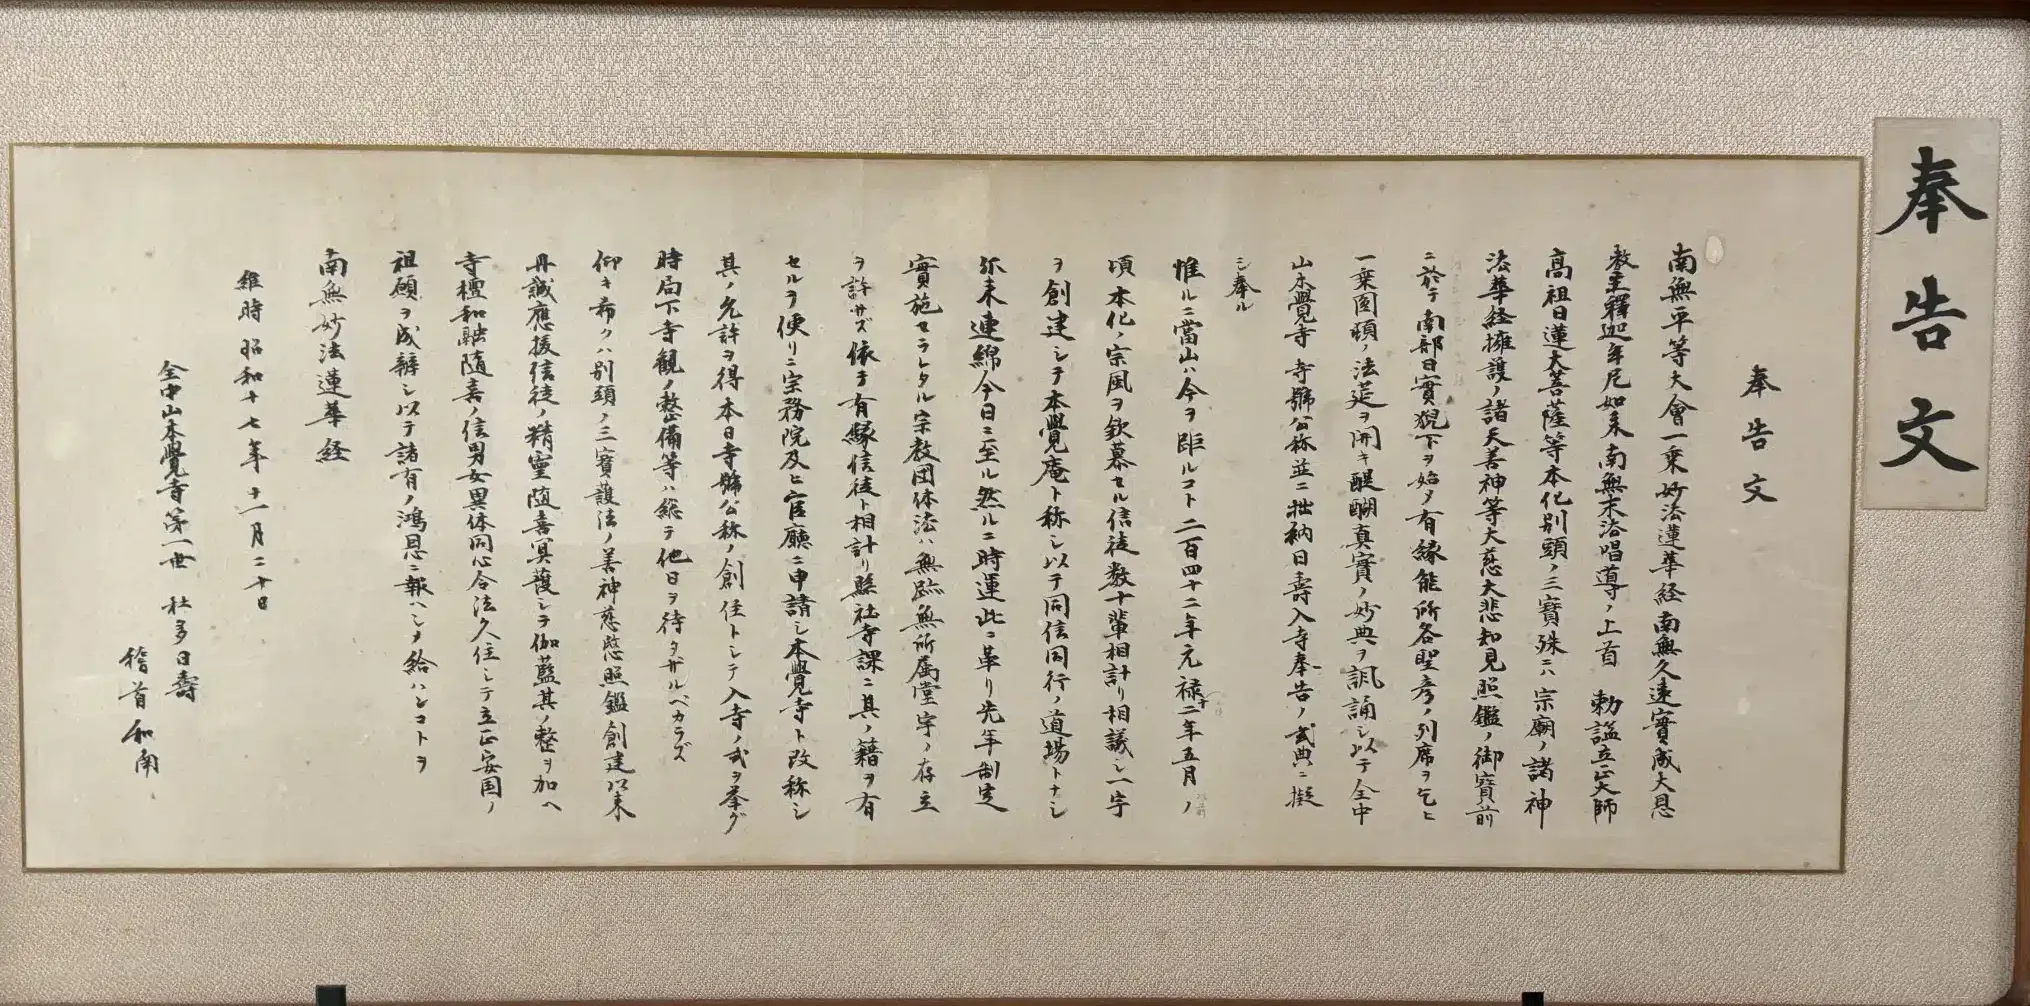 奉告文
奉告文
南無平等大會一乗妙法蓮華経南無久遠實成大恩
教主釋迦牟尼如来南無末法唱導ノ上首 勅謚立正大師
高祖日蓮大菩薩等本化別頭ノ三寶殊ニハ宗廟ノ諸神
法華経擁護ノ諸天善神等大慈大悲知見照鑑ノ御寶前
ニ於テ南部日實猊下ヲ始メ有縁能所各聖彦ノ列席ヲ乞ヒ
一乗圓頓ノ法莚ヲ開キ醍醐真實ノ妙典ヲ諷誦シ以テ全中
山本覺寺 寺號公称並ニ拙納日壽入寺奉告ノ式典ニ擬
シ奉ル
惟ルニ當山ハ今ヲ距ルコト二百四十二年元禄十二年五月ノ
頃本化ノ宗風ヲ欽慕セル信徒数十輩相計リ相議シ一宇
ヲ創建シテ本覺庵ト称シ以テ同信同行ノ道場トナシ
弥来連綿今日ニ至ル然ルニ時運此ニ革リ先年制定
實施セラレタル宗教団体法ハ無趾無所属堂宇ノ存立
ヲ許サズ依テ有縁信徒ト相計リ縣社寺課ニ其ノ籍ヲ有
セルヲ便リニ宗務院及ヒ官廳ニ申請シ本覺寺ト改称シ
其ノ允許ヲ得本日寺號公称ノ創住トシテ入寺ノ式ヲ挙グ
時局下寺観ノ整備等ハ総テ他日ヲ待タザルベカラズ
仰キ希クハ別頭ノ三寶護法ノ善神慈愍照鑑創建以来
丹誠應援信徒ノ精霊随喜冥護シテ伽藍其ノ整ヲ加ヘ
寺檀和融随喜ノ信男女異体同心令法久住シテ立正安国ノ
祖願ヲ成辦シ以テ諸有ノ鴻恩ニ報ヘシメ給ハンコトヲ
南無妙法蓮華経
維時昭和十七年十一月二十日
全中山本覺寺第一世 社多日壽
稽首和南